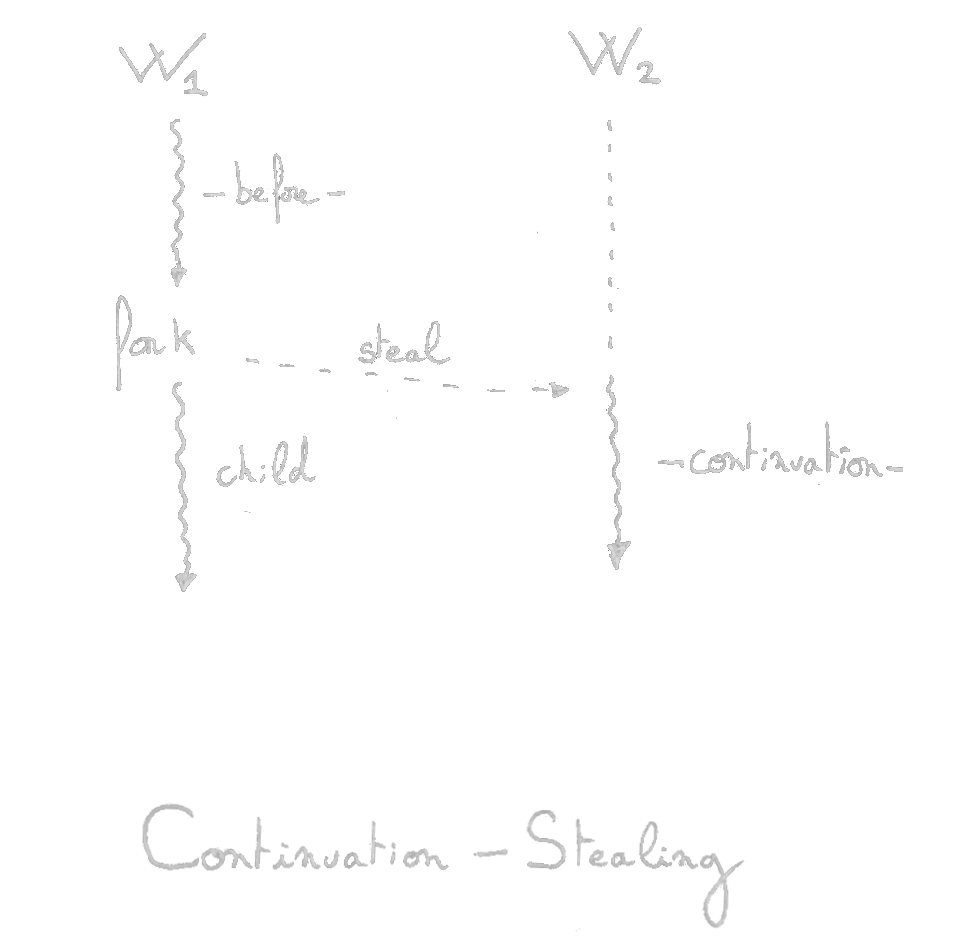 W1 W2
-before-
fork
steal
child
-continuation-
Continuation - Stealing